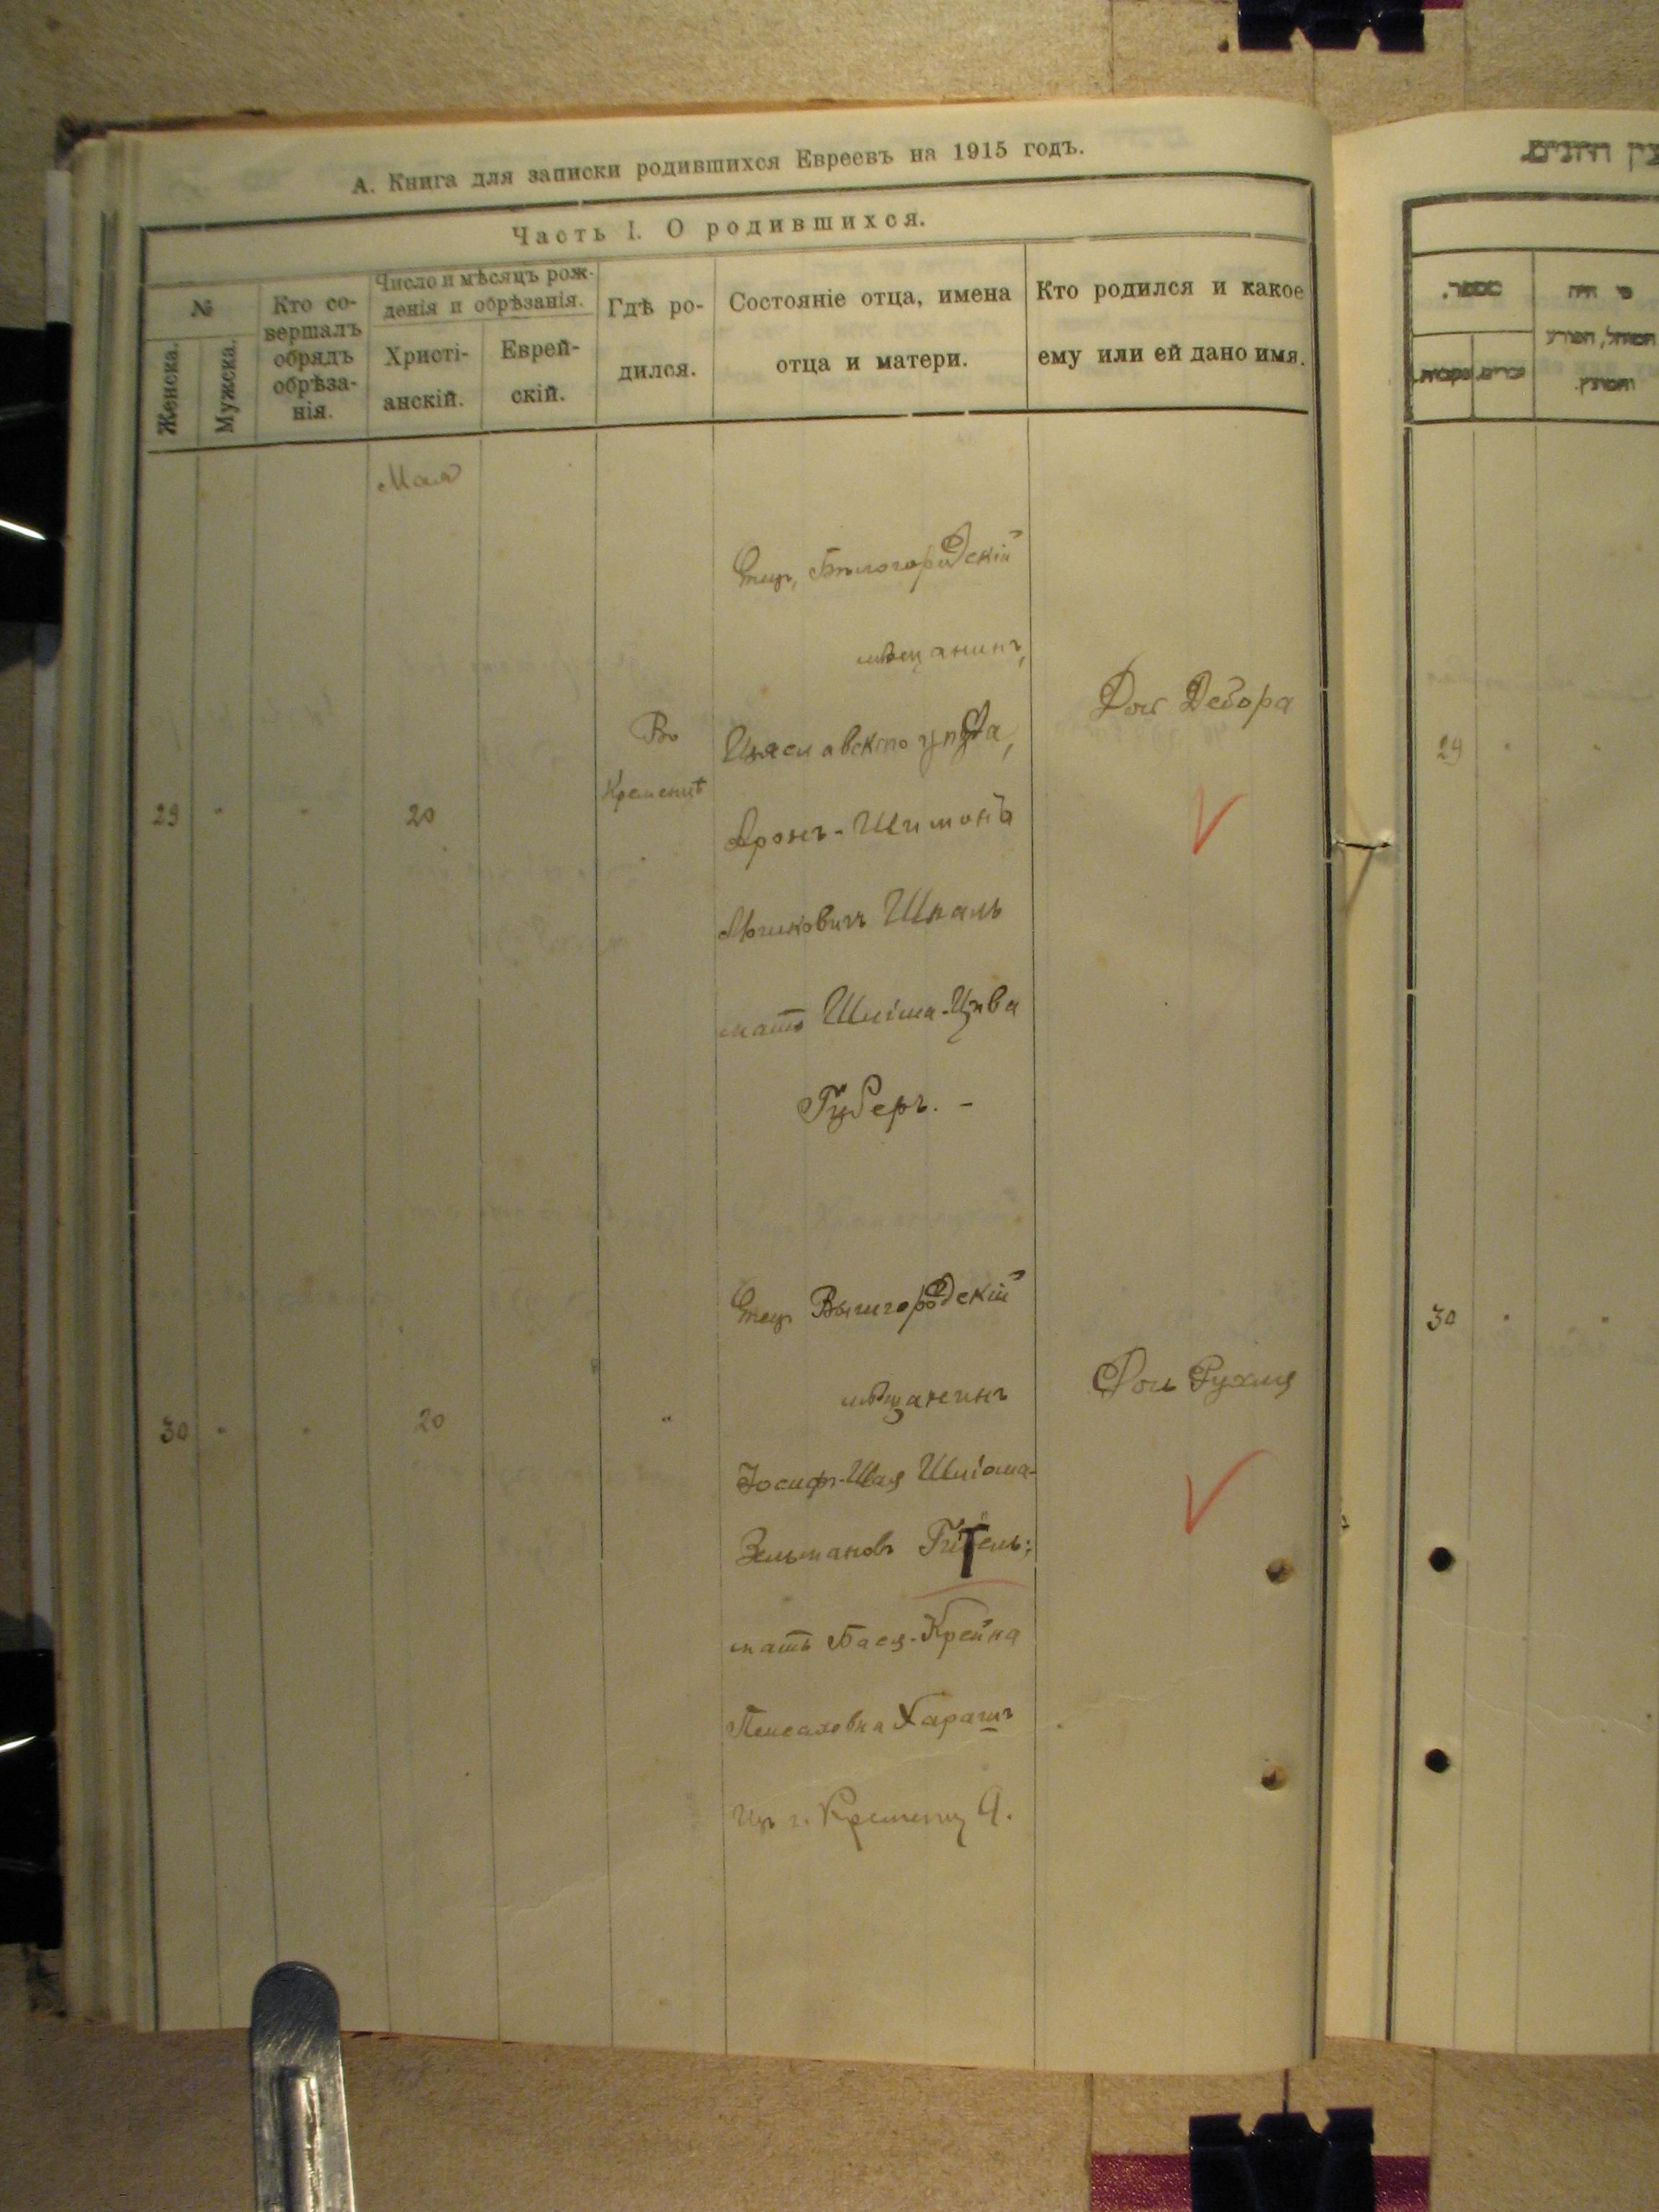 А. Книга для записки родившихся Евреевъ на 1915 годъ.
Часть I. О родившихся.
№
Женска.
Мужска.
Кто со-
вершалъ
обрядъ
обрѣза-
нія.
Число и мѣсяцъ рож-
денія и обрѣзанія.
Христі-
анскій.
Еврей-
скій.
Гдѣ ро-
дился.
Состояніе отца, имена
отца и матери.
Кто родился и какое
ему или ей дано имя.
Мая
29
"
"
20
Во
Кременцѣ
Отецъ, Бѣлогородскій
мѣщанинъ,
Изяславскаго уѣзда,
Аронъ-Шимонъ
Ицковичъ Шкаль
мать Шлима-Цива
Губеръ. -
Дочь Дебора
30
"
"
20
"
Отецъ Вышгородскій
мѣщанинъ
Іосифъ-Шая Шліома-
Зельмановъ Гитель;
мать Бася-Крейна
Пейсаховна Харашъ
Изъ г. Кременца.
Дочь Рухля
מספר.
זכרים.
נקבות.
מי היה
המוהל, הפורע
והמוצץ.
29
"
"
30
"
"